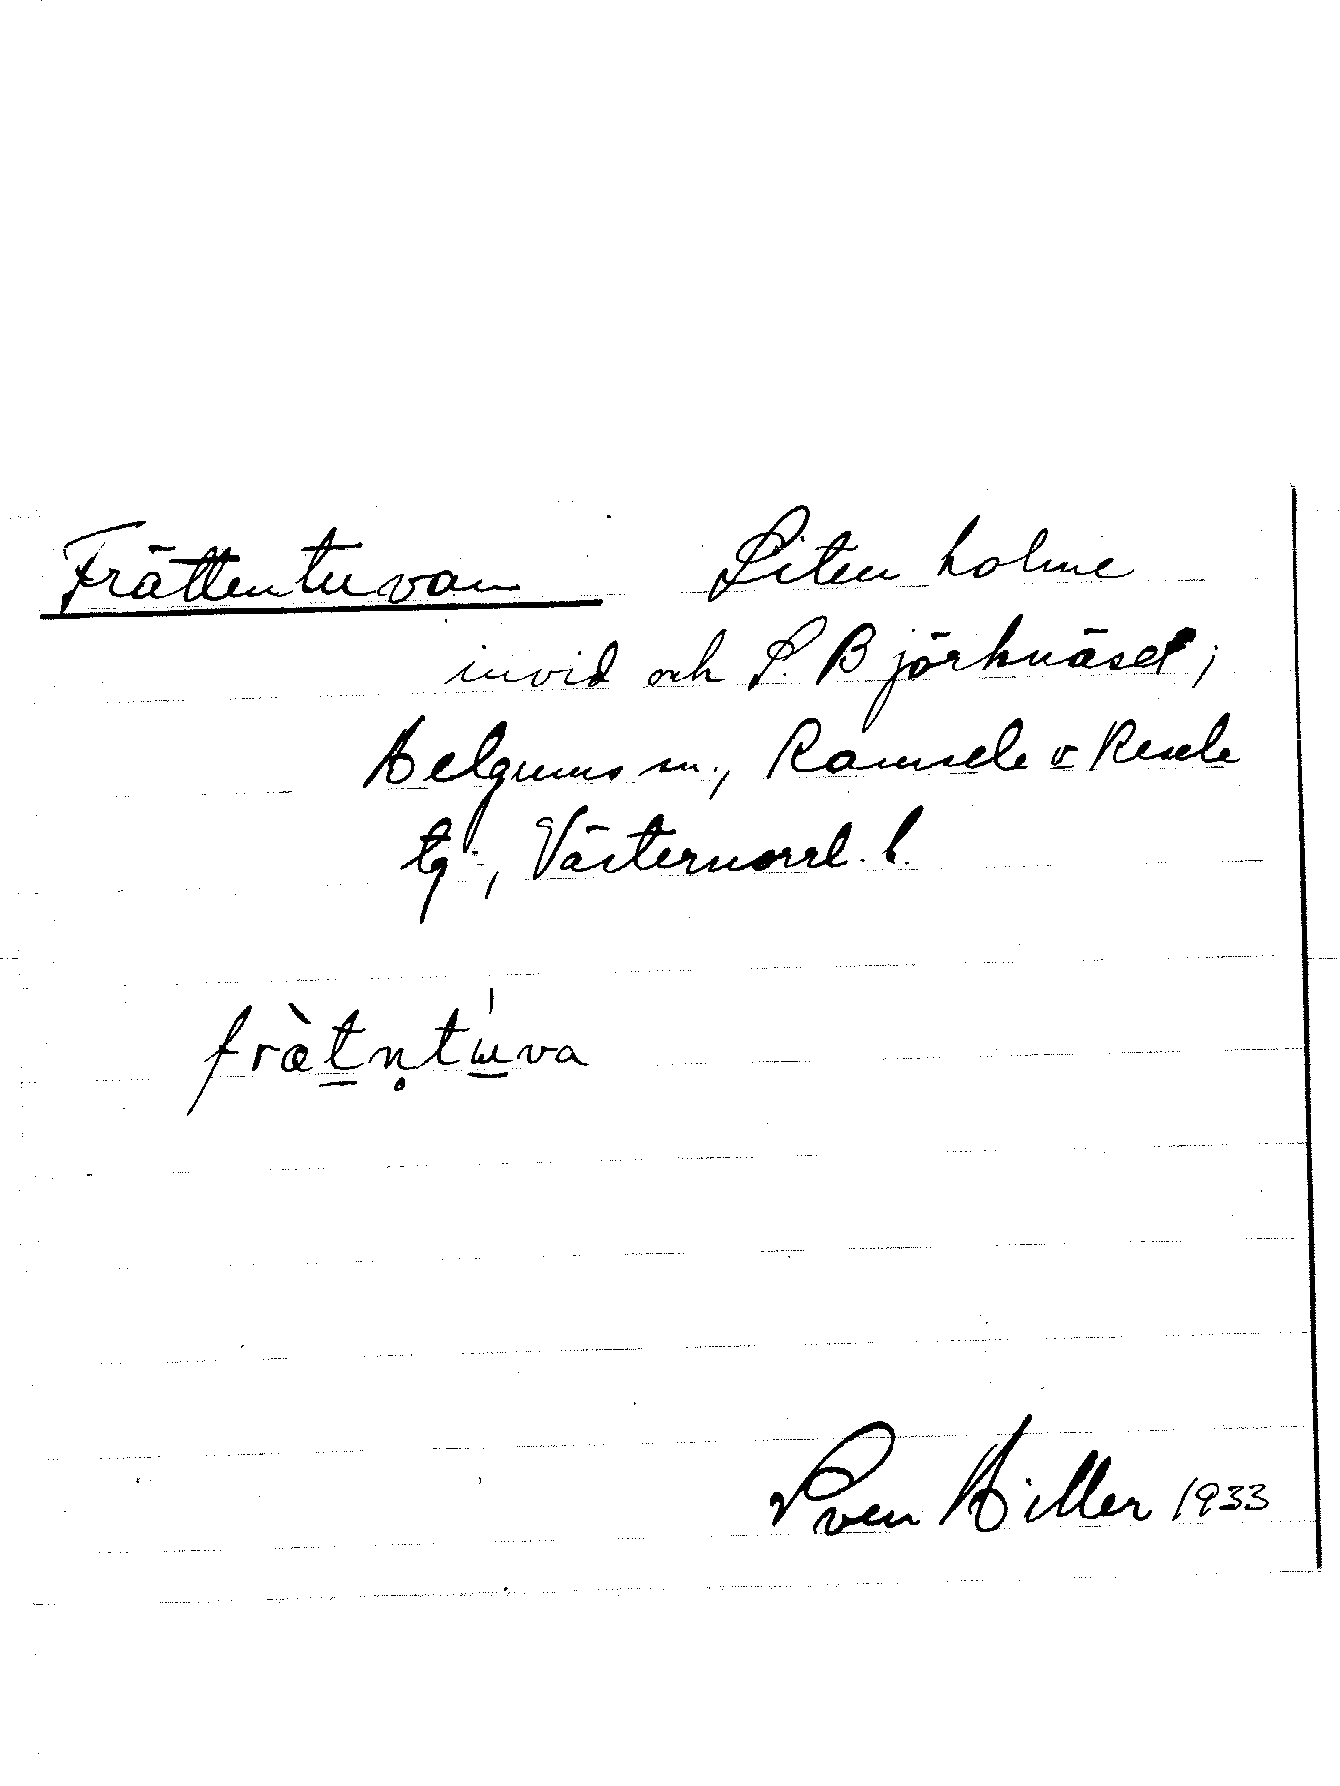 Frättentuvan Liten holme
invid och S. Björknäset;
Helgums sn., Ramsele o Resele
tg., Västernorrl. l.
frætn̥tɯva
Sven Hiller 1933